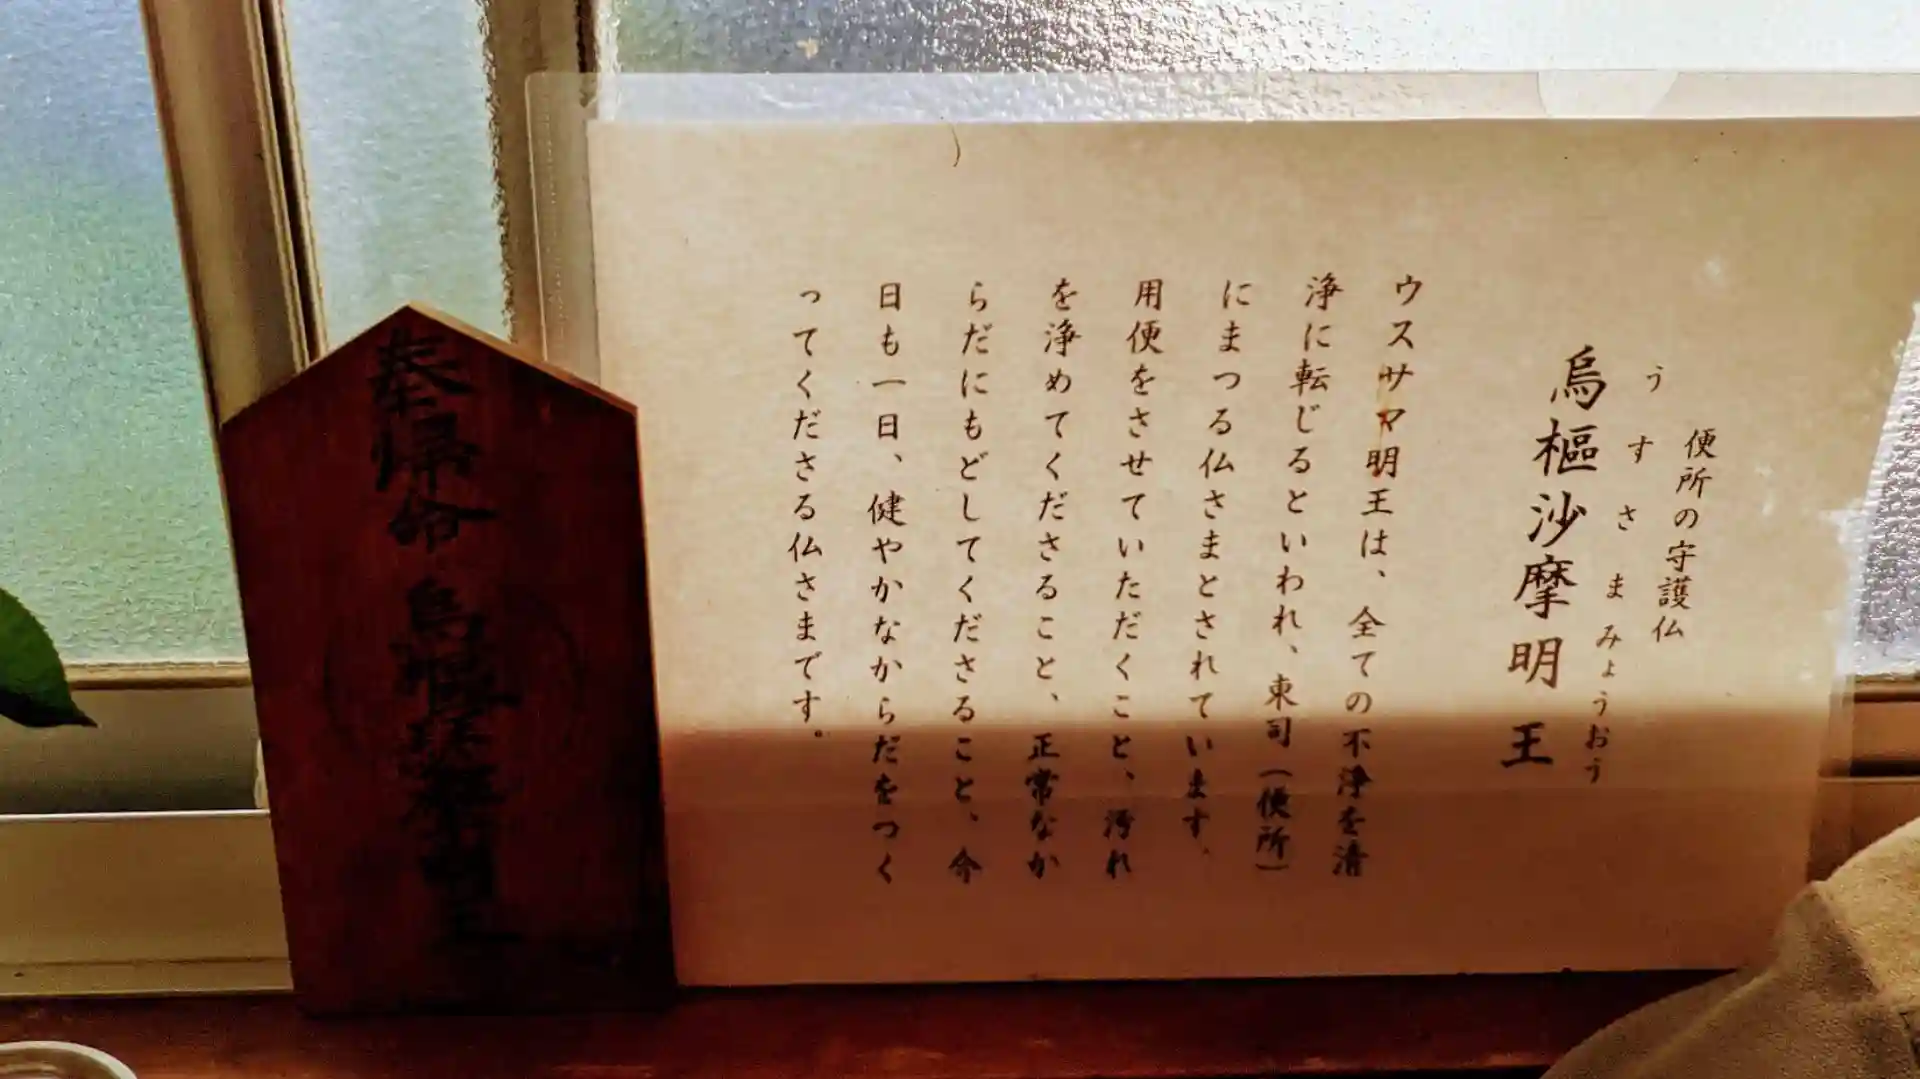 便所の守護仏
うすさまみょうおう
烏樞沙摩明王
ウスサマ明王は、全ての不浄を清
浄に転じるといわれ、東司（便所）
にまつる仏さまとされています。
用便をさせていただくこと、汚れ
を浄めてくださること、正常なか
らだにもどしてくださること、今
日も一日、健やかなからだをつく
ってくださる仏さまです。
奉帰命 烏樞沙摩明王